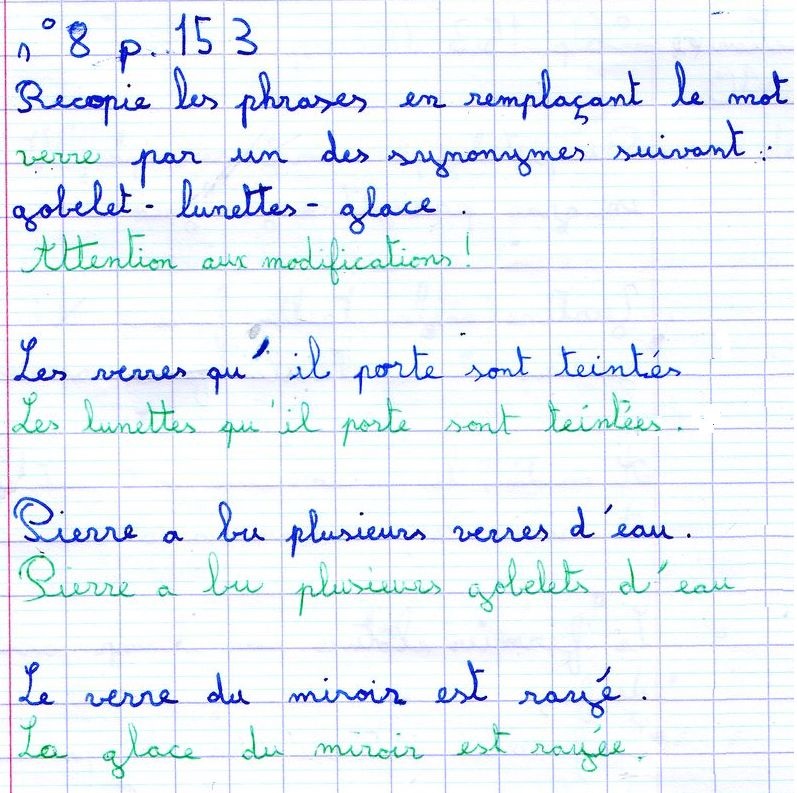 n° 8 p. 153
Recopie les phrases en remplaçant le mot
verre par un des synonymes suivant :
gobelet - lunettes - glace .
Attention aux modifications !
Les verres qu' il porte sont teintés
Les lunettes qu'il porte sont teintées .
Pierre a bu plusieurs verres d'eau .
Pierre a bu plusieurs gobelets d'eau
Le verre du miroir est rayé .
La glace du miroir est rayée .